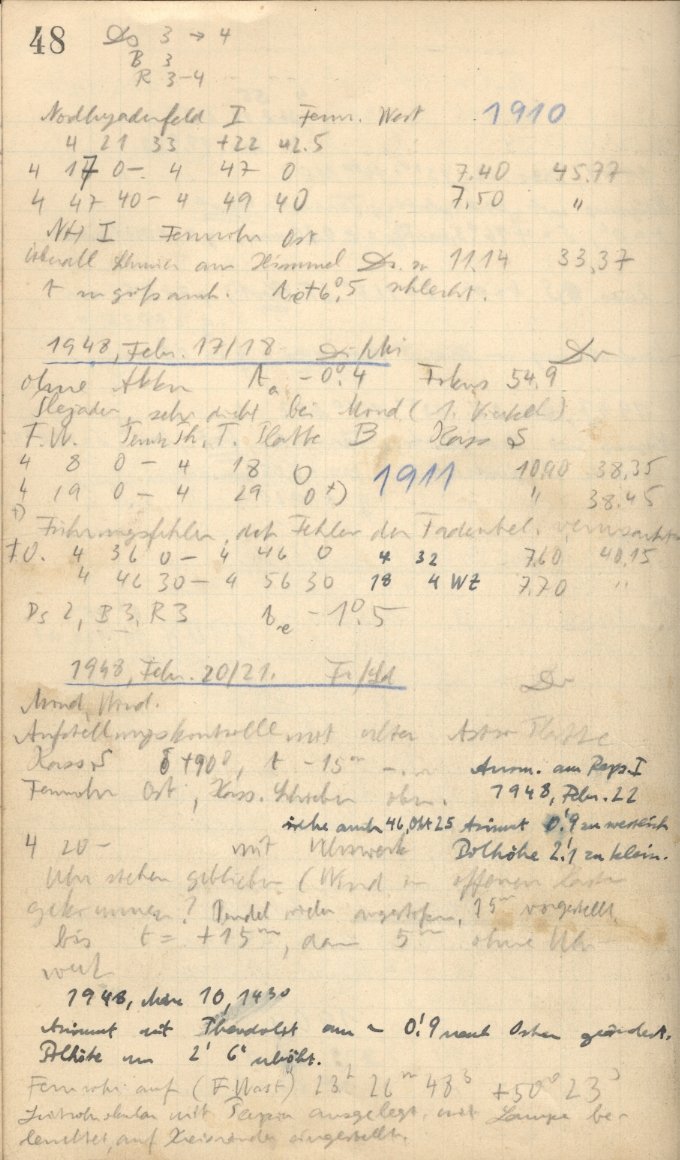 48 Ds 3 → 4
B 3
R 3-4
Nordhyadenfeld I Fernr. West 1910
4 21 33 +22 42.5
4 17 0 – 4 47 0 7.40 45,77
4 47 40 – 4 49 40 7,50 "
NH I Fernrohr Ost
überall am Himmel Ds. 11,14 33,37
t te +6°,5 schlecht.
1948, Febr. 17/18 Dr
ohne Akku ta – 0°,4 Fokus 54.9
Plejaden, sehr dicht bei Mond (1. Viertel)
F.W. T. Platte B Kass S
4 8 0 – 4 18 0 1911 10,90 38,35
4 19 0 – 4 29 0 +) " 38,45
+) Führungsfehler, der Fadenbel.
F.O. 4 36 0 – 4 46 0 4 32 7,60 40,15
4 46 30 – 4 56 30 18 4 WZ 7,70 "
Ds 2, B 3, R 3 te – 1°,5
1948, Febr. 20/21. Dr
Mond, Wind.
Aufstellungskontrolle mit alter Astro Platte
Kass S δ +90°, t – 15m
Fernrohr Ost, Kass. Schieber oben.
Anm. am Reps. I
1948, Febr. 22
siehe auch 46, Okt 25 Azimut 0!9 zu westlich
Polhöhe 2!1 zu klein.
4 20 – mit Uhrwerk
Uhr stehen geblieben (Wind in offenen
gekommen? Pendel wieder angestoßen, 15m vorgestellt,
bis t = +15m, dann 5m ohne Uhr-
werk
1948, März 10, 1430
Azimut mit Theodolit um ~ 0!9 nach Osten geändert.
Polhöhe um 2' 6" erhöht.
Fernrohr auf (F. West) 23h 26m 48s +50° 23'
mit Papier ausgelegt, mit Lampe be-
leuchtet, auf eingestellt.